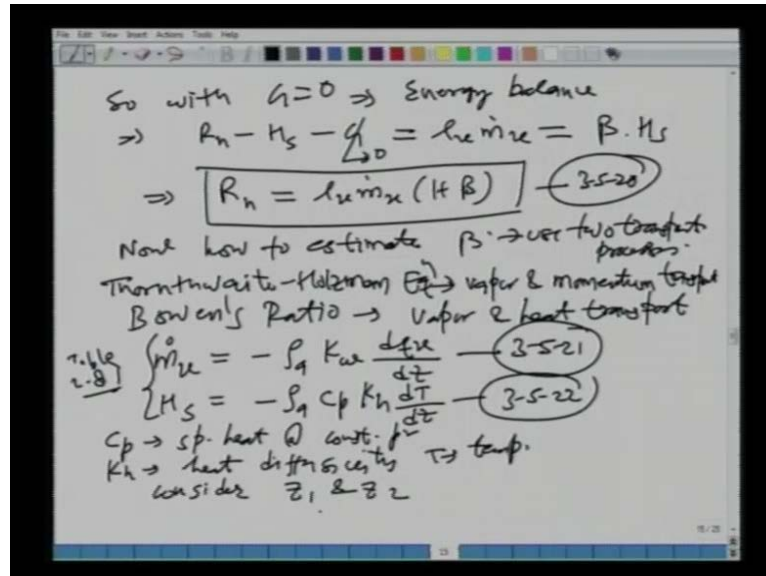 File Edit View Insert Actions Tools Help
So with G=0 ⇒ Energy balance
⇒ Rn - Hs - G→0 = lv ṁv = β.Hs
⇒ Rn = lv ṁv (1+β) — 3-5-20
Now how to estimate β. → use two transport processes.
Thornthwaite-Holzman Eqn → vapor & momentum transport
Bowen's Ratio → vapor & heat transport
Table 2-8 ṁv = - ρa Kw dqv/dz — 3-5-21
Hs = - ρa Cp Kh dT/dz — 3-5-22
Cp → sp. heat @ const. pr
Kh → heat diffusivity T → temp.
consider Z1 & Z2
15/25
13